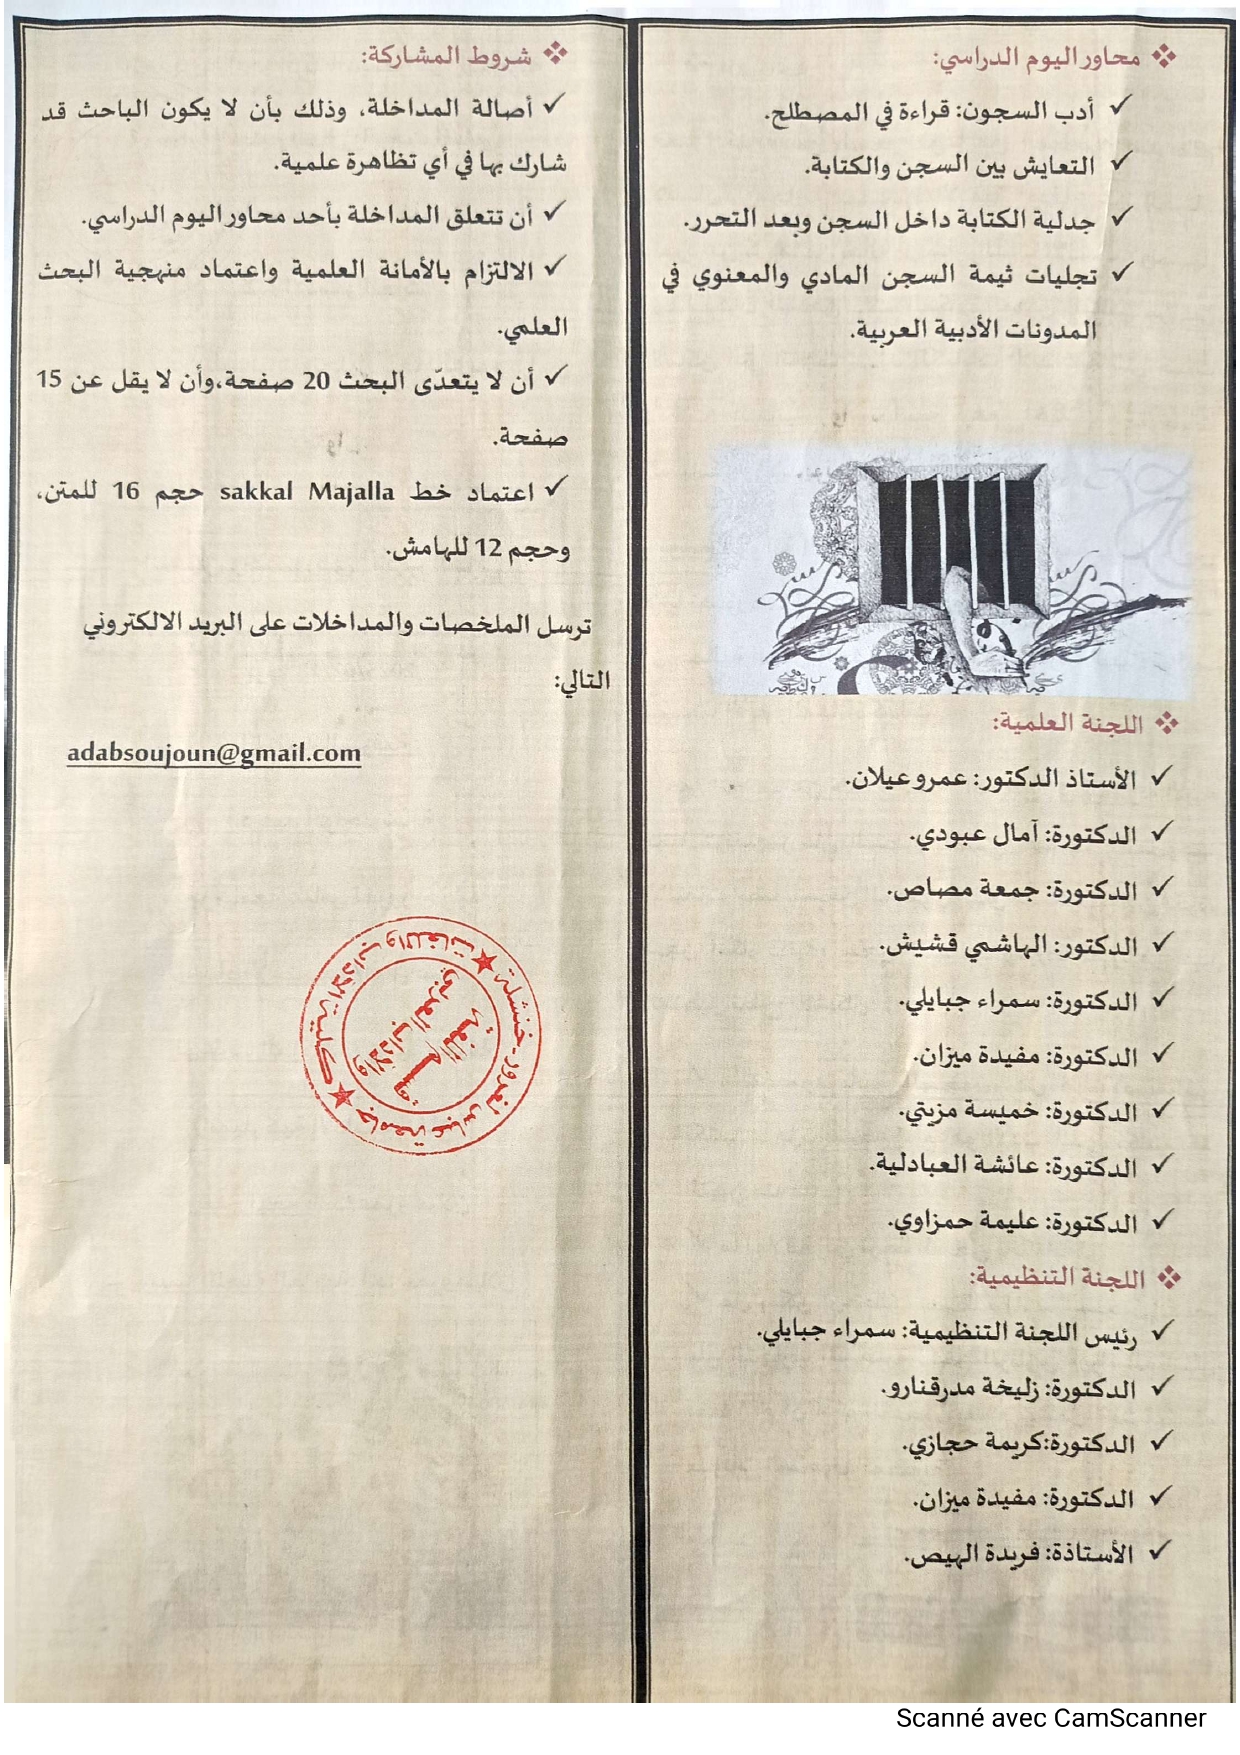 محاور اليوم الدراسي:
أدب السجون: قراءة في المصطلح.
التعايش بين السجن والكتابة.
جدلية الكتابة داخل السجن وبعد التحرر.
تجليات ثيمة السجن المادي والمعنوي في
المدونات الأدبية العربية.
اللجنة العلمية:
الأستاذ الدكتور: عمرو عيلان.
الدكتورة: آمال عبودي.
الدكتورة: جمعة مصاص.
الدكتور: الهاشمي قشيش.
الدكتورة: سمراء جبايلي.
الدكتورة: مفيدة ميزان.
الدكتورة: خميسة مزيتي.
الدكتورة: عائشة العبادلية.
الدكتورة: عليمة حمزاوي.
اللجنة التنظيمية:
رئيس اللجنة التنظيمية: سمراء جبايلي.
الدكتورة: زليخة مدرقنارو.
الدكتورة:كريمة حجازي.
الدكتورة: مفيدة ميزان.
الأستاذة: فريدة الهيص.
شروط المشاركة:
أصالة المداخلة، وذلك بأن لا يكون الباحث قد
شارك بها في أي تظاهرة علمية.
أن تتعلق المداخلة بأحد محاور اليوم الدراسي.
الالتزام بالأمانة العلمية واعتماد منهجية البحث
العلمي.
أن لا يتعدّى البحث 20 صفحة،وأن لا يقل عن 15
صفحة.
اعتماد خط sakkal Majalla حجم 16 للمتن،
وحجم 12 للهامش.
ترسل الملخصات والمداخلات على البريد الالكتروني
التالي:
adabsoujoun@gmail.com
جامعة عباس لغرور-خنشلة
كلية الآداب واللغات
قسم اللغة
والآداب العربي
Scanné avec CamScanner